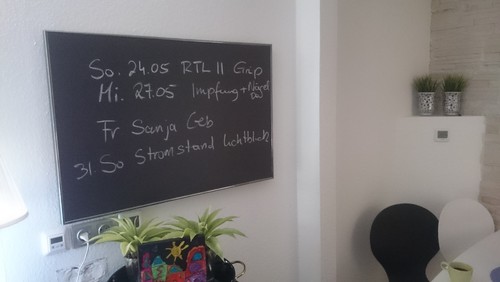 So. 24.05 RTL II Grip
Mi. 27.05 Impfung +
Fr Sanja Geb
31 So Stromstand Lichtblick